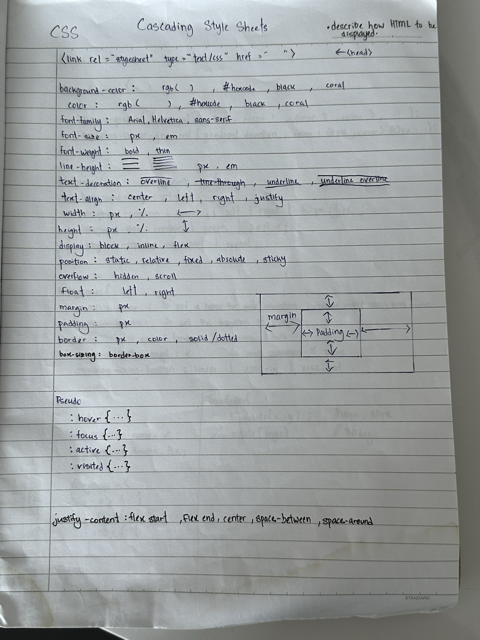 CSS
Cascading Style Sheets
• describe how HTML to be displayed.
<link rel = "stylesheet" type = "text/css" href = " "> ← <head>
background-color: rgb( ), #hexcode, black, coral
color: rgb( ), #hexcode, black, coral
font-family: Arial, Helvetica, sans-serif
font-size: px, em
font-weight: bold, thin
line-height: px, em
text-decoration: overline, line-through, underline, underline overline
text-align: center, left, right, justify
width: px, %. ↔
height: px, %. ↕
display: block, inline, flex
position: static, relative, fixed, absolute, sticky
overflow: hidden, scroll
float: left, right
margin: px
padding: px
border: px, color, solid/dotted
box-sizing: border-box
margin
Padding
Pseudo
:hover {...}
:focus {...}
:active {...}
:visited {...}
justify-content: flex start, flex end, center, space-between, space-around
STANDARD